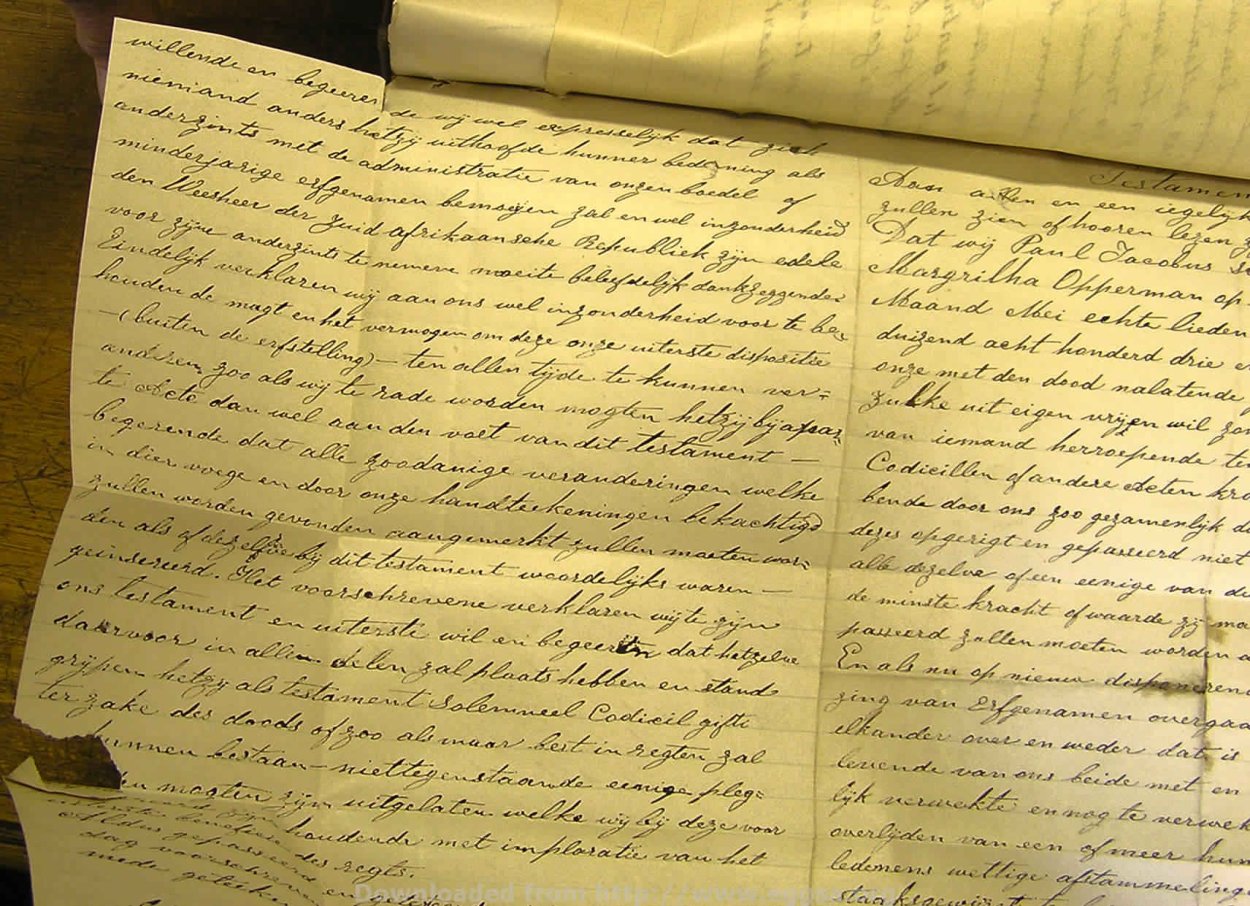 willende en begeeren de wij wel expresselijk dat zich
niemand anders hetzij uithoofde hunner bediening als
anderzints met de administratie van onzen boedel of
minderjarige erfgenamen bemoeijen zal en wel inzonderheid
den Weesheer der Zuid Afrikaansche Republiek zijn edele
voor zijne anderzints te nemene moeite beleefdelijk dankzeggende
Eindelijk verklaren wij aan ons wel inzonderheid voor te be=
houden de magt en het vermogen om deze onze uiterste dispositie
—(buiten de erfstelling)— ten allen tijde te kunnen ver=
anderen, zoo als wij te rade worden mogten hetzij bij apar=
te Acte dan wel aan den voet van dit testament —
begerende dat alle zoodanige veranderingen welke
in dier voege en door onze handteekeningen bekachtigd
zullen worden gevonden aangemerkt zullen moeten wor=
den als of dezelfde bij dit testament woordelijks waren —
geinsereerd. Het voorschrevene verklaren wij te zijn
ons testament en uiterste wil en begeerten dat hetzelve
daarvoor in allen delen zal plaats hebben en stand
grijpen hetzij als testament Solemneel Codicil gifte
ter zake des doods of zoo als maar best in regten zal
kunnen bestaan — niettegenstaande eenige pleg=
moeten zijn uitgelaten welke wij bij deze voor
houdende met imploratie van het
des regts.
Aldus gepasseerd
dag voorschreven en
mede geteeken
Testamen
Aan allen en een iegelijk
zullen zien of hooren lezen
Dat wij Paul Jacobus
Margritha Opperman op
Maand Mei echte lieden
duizend acht honderd drie e
onze met den dood nalatende
zulke uit eigen vrijen wil zon
van iemand herroepende te
Codicillen of andere Acten kra
bende door ons zoo gezamenlijk
dezes opgerigt en gepasseerd niet
alle dezelve of een eenige van de
de minste kracht of waarde zij ma
passeerd zullen moeten worden a
En als nu op nieuw disponeren
zing van Erfgenamen overgaa
elkander over en weder dat is
levende van ons beide met en
lijk verwekte en nog te verwek
overlijden van een of meer hun
ledenens wettige afstammelinge
staaksgewijst
Downloaded from: http://www.